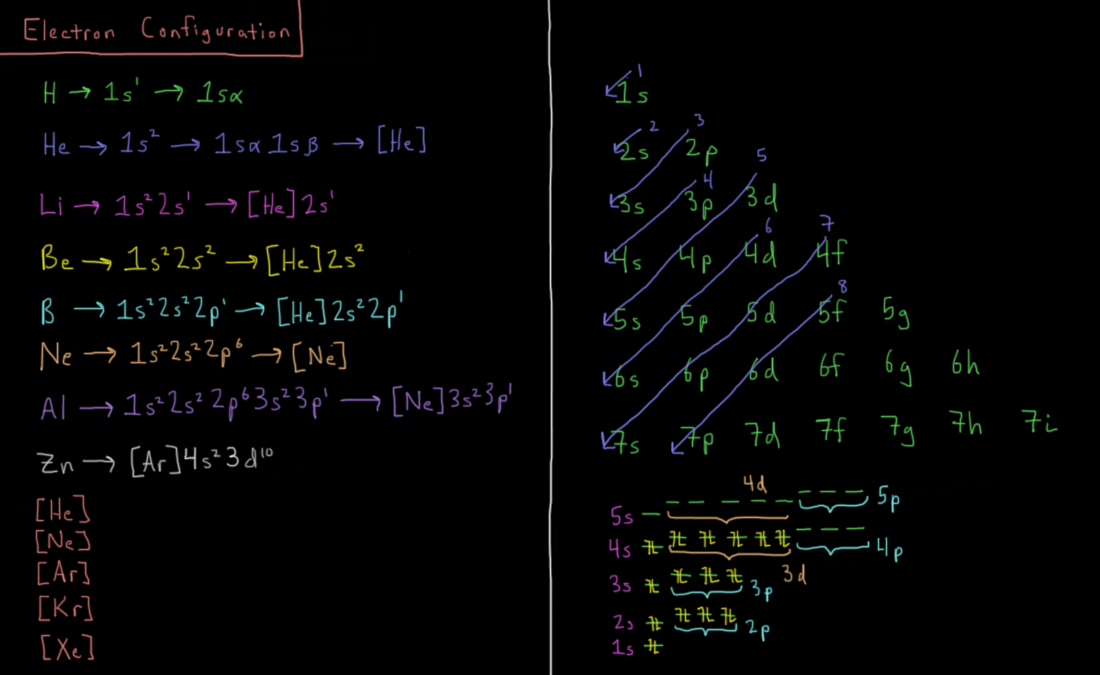 Electron Configuration
H → 1s¹ → 1sα
He → 1s² → 1sα 1sβ → [He]
Li → 1s²2s¹ → [He]2s¹
Be → 1s²2s² → [He]2s²
B → 1s²2s²2p¹ → [He]2s²2p¹
Ne → 1s²2s²2p⁶ → [Ne]
Al → 1s²2s²2p⁶3s²3p¹ → [Ne]3s²3p¹
Zn → [Ar]4s²3d¹⁰
[He]
[Ne]
[Ar]
[Kr]
[Xe]
1
1s
2 3
2s 2p 5
4
3s 3p 3d
6 7
4s 4p 4d 4f
8
5s 5p 5d 5f 5g
6s 6p 6d 6f 6g 6h
7s 7p 7d 7f 7g 7h 7i
4d 5p
5s
4s 4p
3d
3s 3p
2s 2p
1s